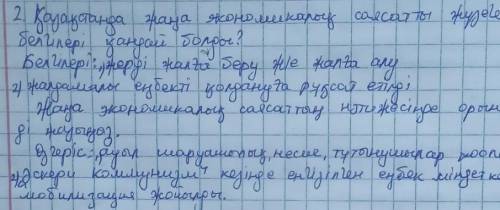 2. Қазақстанда жаңа экономикалық саясатты жүзеге
белгілері қандай болды?
Белгілері: жерді жалға беру ж/е жалға алу
2) жалдамалы еңбекті қолдануға рұқсат етілді
Жаңа экономикалық саясаттың нәтижесінде орын
ді жазыңыз.
Өзгеріс: ауыл шаруашылық, несие, тұтынушылар кооп
2) "Әскери коммунизм" кезінде енгізілген еңбек міндетке
мобилизация жойылды.